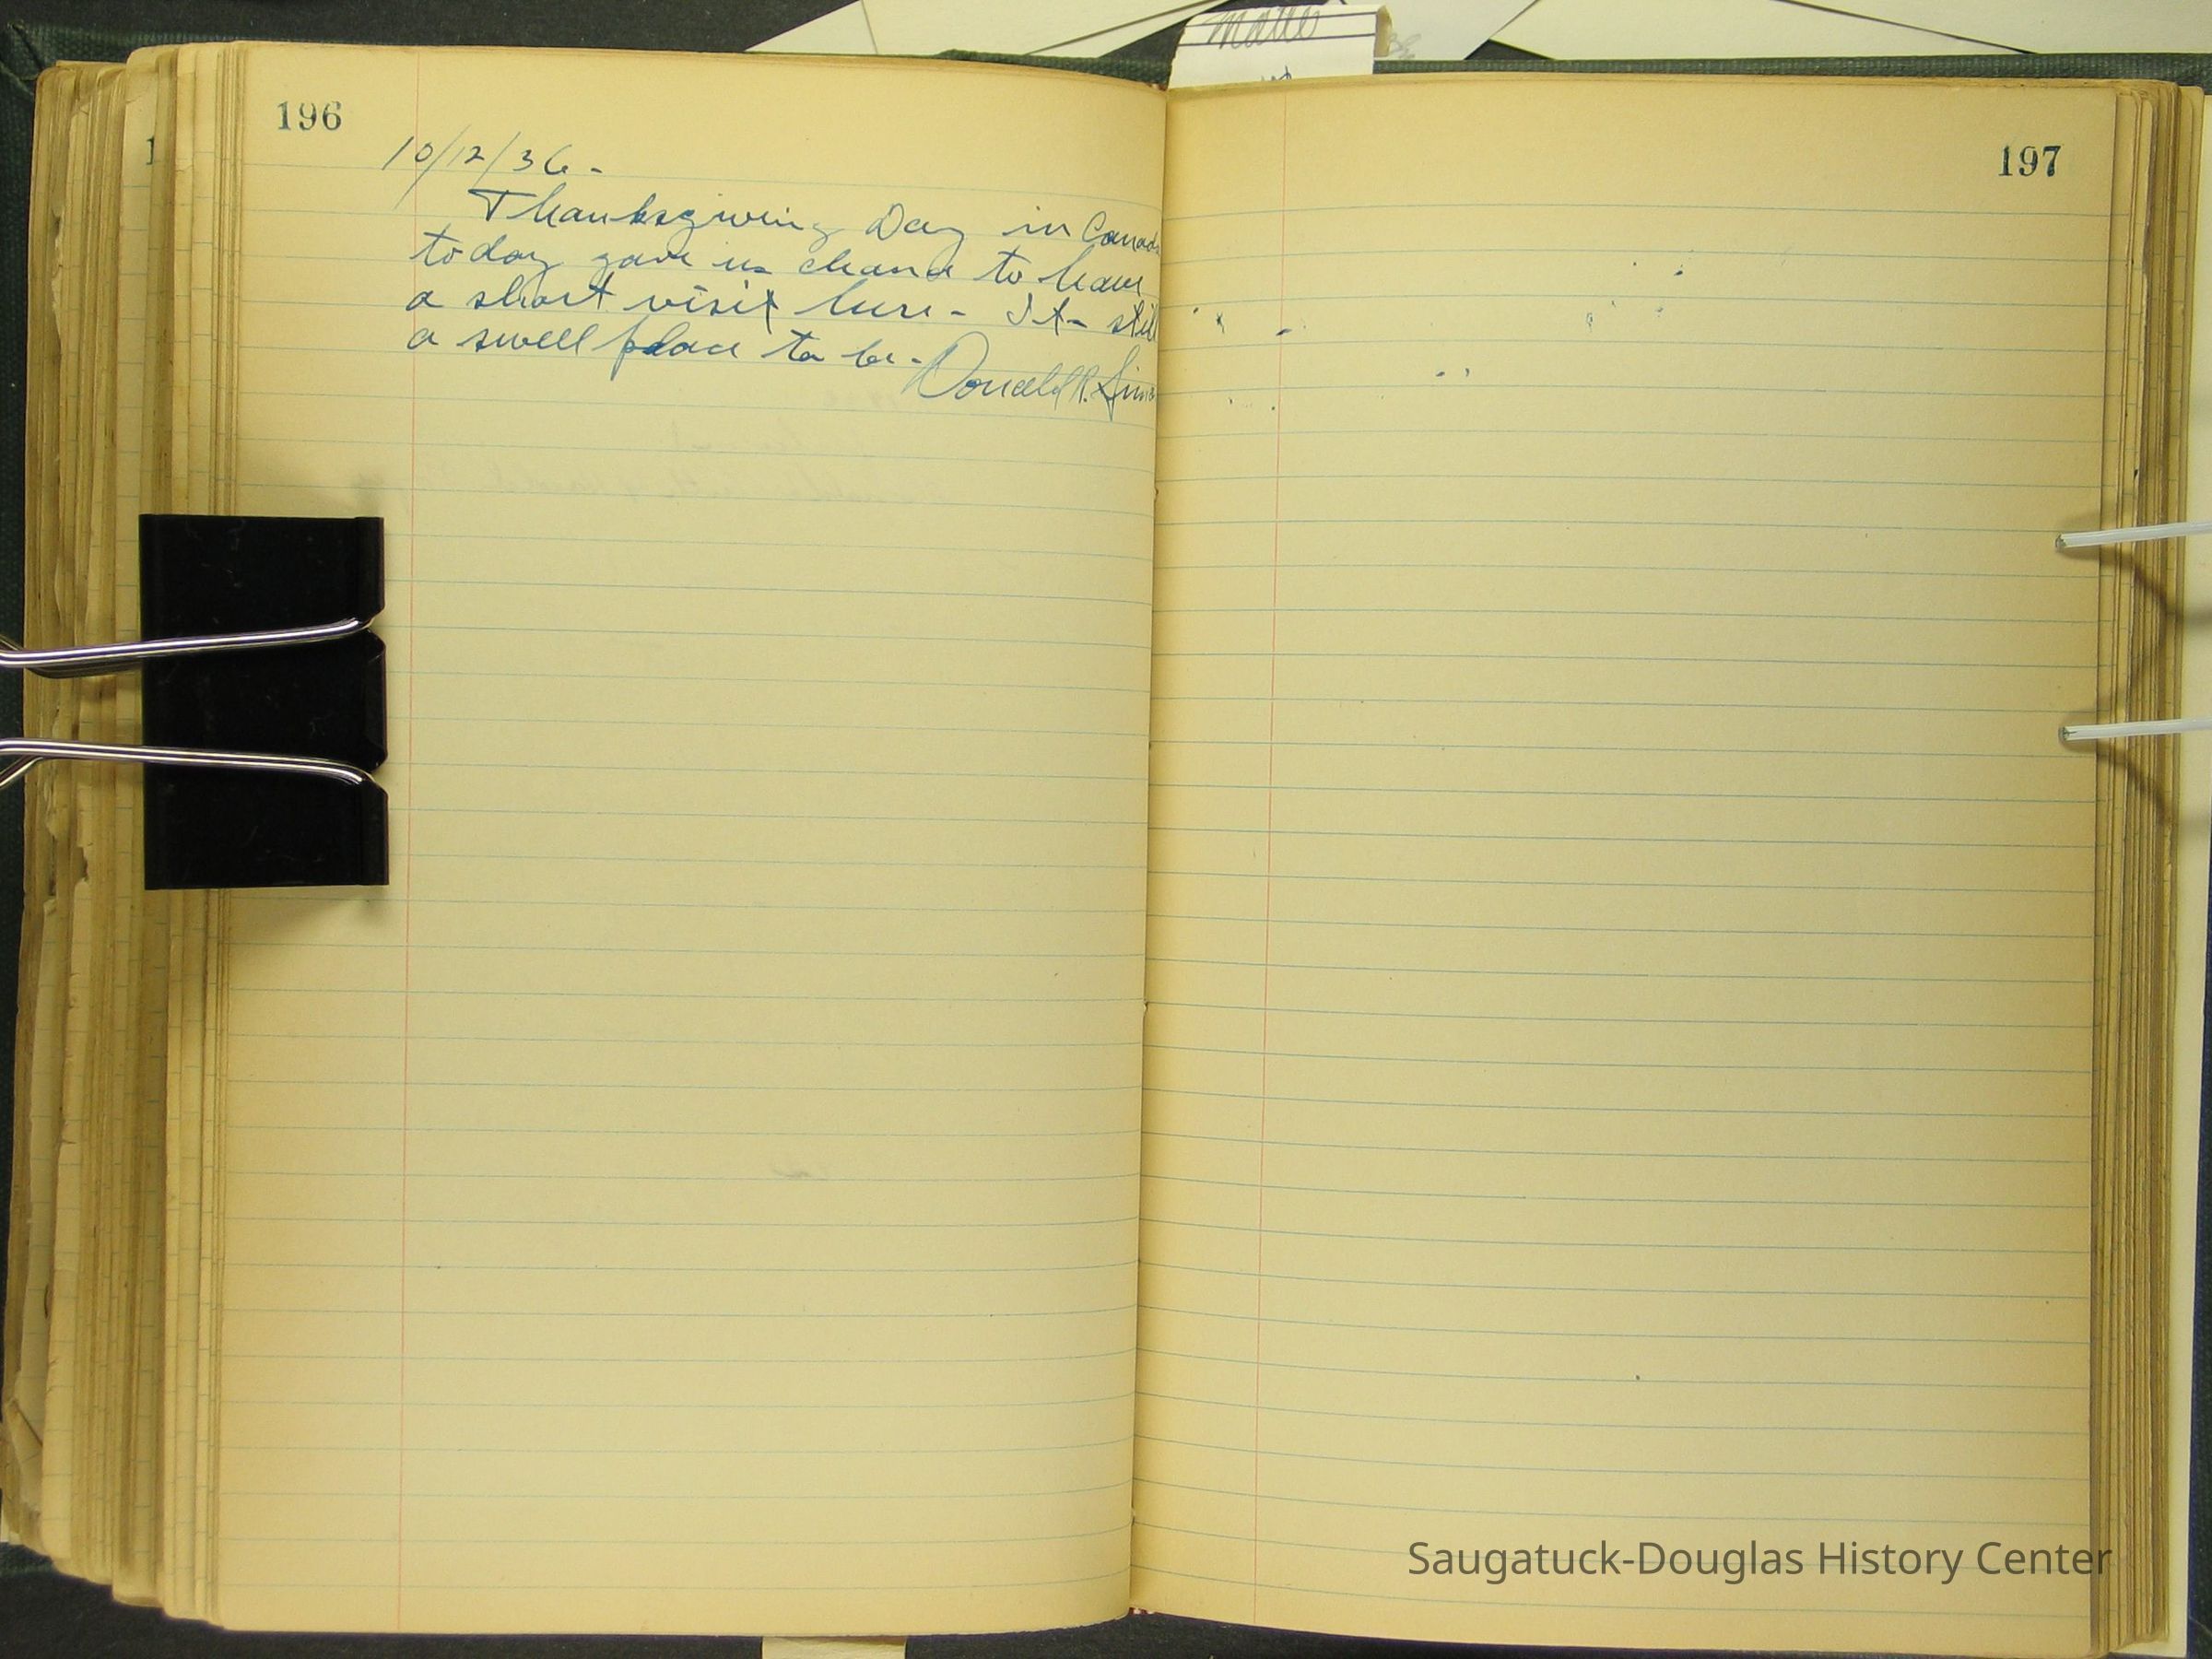 matt
196
10/12/36 -
Thanksgiving Day in Canada
today gave us chance to have
a short visit here - Its still
a swell place to be -
Donald R.
197
Saugatuck-Douglas History Center